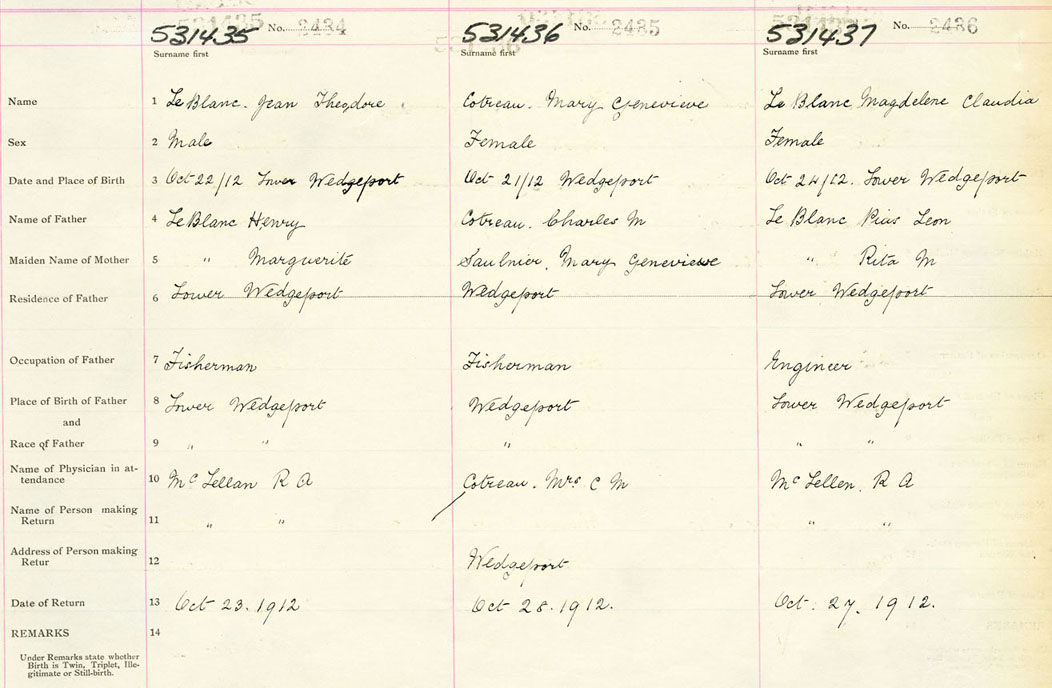 531435 No. 2434 531436 No. 2435 531437 No. 2436
Surname first Surname first Surname first
Name 1 LeBlanc. Jean Theodore Cotreau. Mary Genevieve Le Blanc Magdelene Claudia
Sex 2 Male Female Female
Date and Place of Birth 3 Oct 22/12 Lower Wedgeport Oct 21/12 Wedgeport Oct 24/12. Lower Wedgeport
Name of Father 4 LeBlanc Henry Cotreau. Charles M Le Blanc Pius Leon
Maiden Name of Mother 5 " Marguerite Saulnier. Mary Genevieve " Rita M
Residence of Father 6 Lower Wedgeport Wedgeport Lower Wedgeport
Occupation of Father 7 Fisherman Fisherman Engineer
Place of Birth of Father 8 Lower Wedgeport Wedgeport Lower Wedgeport
and
Race of Father 9 " " " " "
Name of Physician in at-
tendance 10 McLellan R A Cotreau. Mrs C M McLellen. R A
Name of Person making
Return 11 " " " "
Address of Person making
Retur 12 Wedgeport
Date of Return 13 Oct 23. 1912 Oct 28. 1912. Oct. 27. 1912.
REMARKS 14
Under Remarks state whether
Birth is Twin, Triplet, Ille-
gitimate or Still-birth.